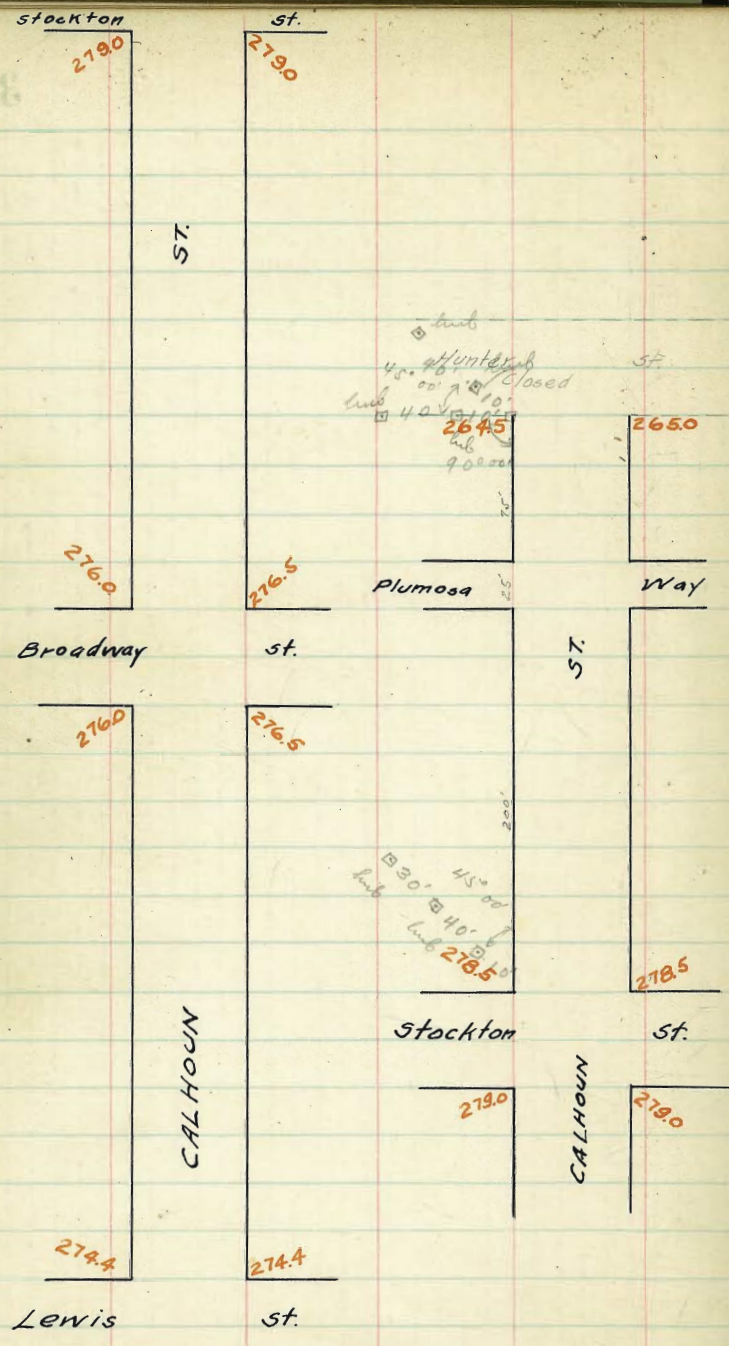 Stockton St.
279.0 279.0
ST.
276.0 276.5
Broadway St.
276.0 276.5
CALHOUN
274.4 274.4
Lewis St.
hub
Hunter St.
45° 90°
00'
hub
Closed
10'
hub 40' 10'
264.5 265.0
hub
90°00'
75'
Plumosa 25' Way
ST.
200'
30' 45°00'
hub
40'
hub
278.5 10' 278.5
Stockton St.
279.0 279.0
CALHOUN